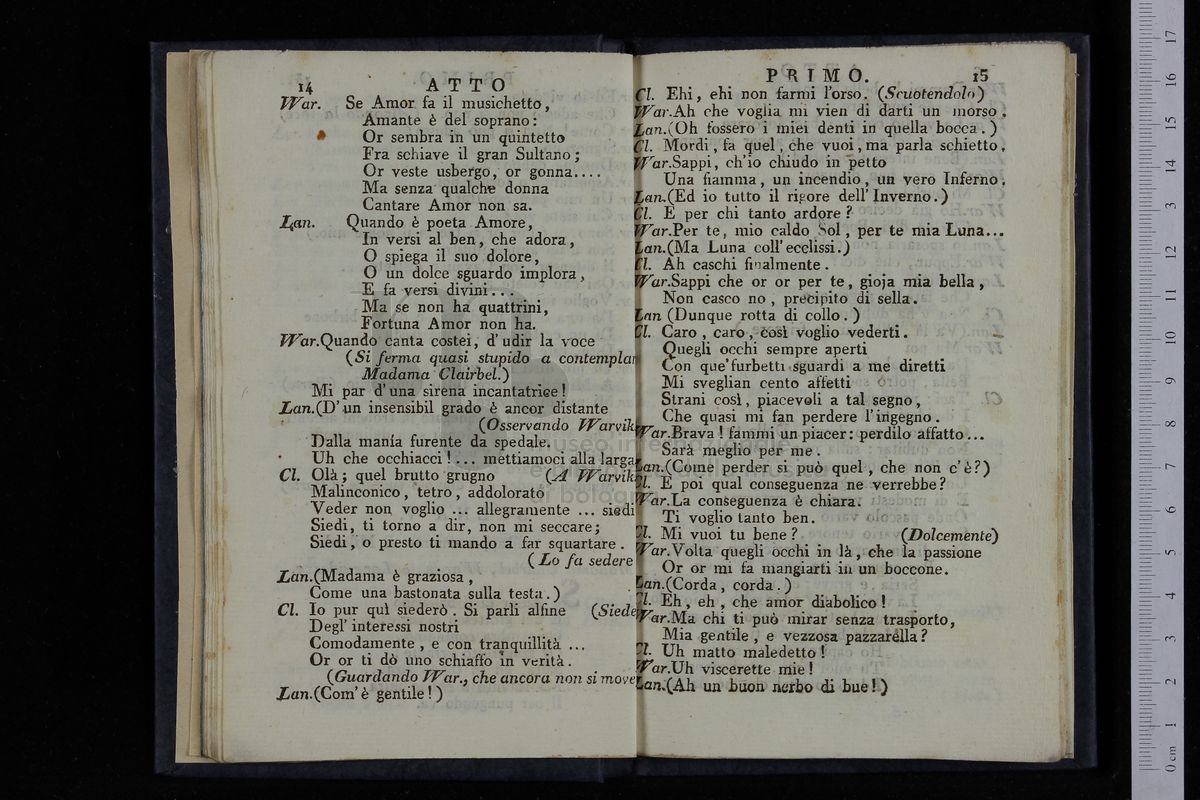 14 ATTO
War. Se Amor fa il musichetto,
Amante è del soprano:
Or sembra in un quintetto
Fra schiave il gran Sultano;
Or veste usbergo, or gonna....
Ma senza qualche donna
Cantare Amor non sa.
Lan. Quando è poeta Amore,
In versi al ben, che adora,
O spiega il suo dolore,
O un dolce sguardo implora,
E fa versi divini...
Ma se non ha quattrini,
Fortuna Amor non ha.
War. Quando canta costei, d'udir la voce
(Si ferma quasi stupido a contemplar
Madama Clairbel.)
Mi par d'una sirena incantatrice!
Lan. (D'un insensibil grado è ancor distante
(Osservando Warvik
Dalla manía furente da spedale.
Uh che occhiacci!... mettiamoci alla larga
Cl. Olà; quel brutto grugno (A Warvik
Malinconico, tetro, addolorato
Veder non voglio ... allegramente ... siedi
Siedi, ti torno a dir, non mi seccare;
Siedi, o presto ti mando a far squartare.
(Lo fa sedere
Lan. (Madama è graziosa,
Come una bastonata sulla testa.)
Cl. Io pur quì siederò. Si parli alfine (Siede
Degl'interessi nostri
Comodamente, e con tranquillità ...
Or or ti dò uno schiaffo in verità.
(Guardando War., che ancora non si move
Lan. (Com'è gentile!)
PRIMO. 15
Cl. Ehi, ehi non farmi l'orso. (Scuotendolo)
War. Ah che voglia mi vien di darti un morso.
Lan. (Oh fossero i miei denti in quella bocca.)
Cl. Mordi, fa quel, che vuoi, ma parla schietto.
War. Sappi, ch'io chiudo in petto
Una fiamma, un incendio, un vero Inferno.
Lan. (Ed io tutto il rigore dell'Inverno.)
Cl. E per chi tanto ardore?
War. Per te, mio caldo Sol, per te mia Luna...
Lan. (Ma Luna coll'ecclissi.)
Cl. Ah caschi finalmente.
War. Sappi che or or per te, gioja mia bella,
Non casco no, precipito di sella.
Lan (Dunque rotta di collo.)
Cl. Caro, caro, così voglio vederti.
Quegli occhi sempre aperti
Con que'furbetti sguardi a me diretti
Mi sveglian cento affetti
Strani così, piacevoli a tal segno,
Che quasi mi fan perdere l'ingegno.
War. Brava! fammi un piacer: perdilo affatto...
Sarà meglio per me.
Lan. (Come perder si può quel, che non c'è?)
Cl. E poi qual conseguenza ne verrebbe?
War. La conseguenza è chiara.
Ti voglio tanto ben.
Cl. Mi vuoi tu bene? (Dolcemente)
War. Volta quegli occhi in là, che la passione
Or or mi fa mangiarti in un boccone.
Lan. (Corda, corda.)
Cl. Eh, eh, che amor diabolico!
War. Ma chi ti può mirar senza trasporto,
Mia gentile, e vezzosa pazzarella?
Cl. Uh matto maledetto!
War. Uh viscerette mie!
Lan. (Ah un buon nerbo di bue!)